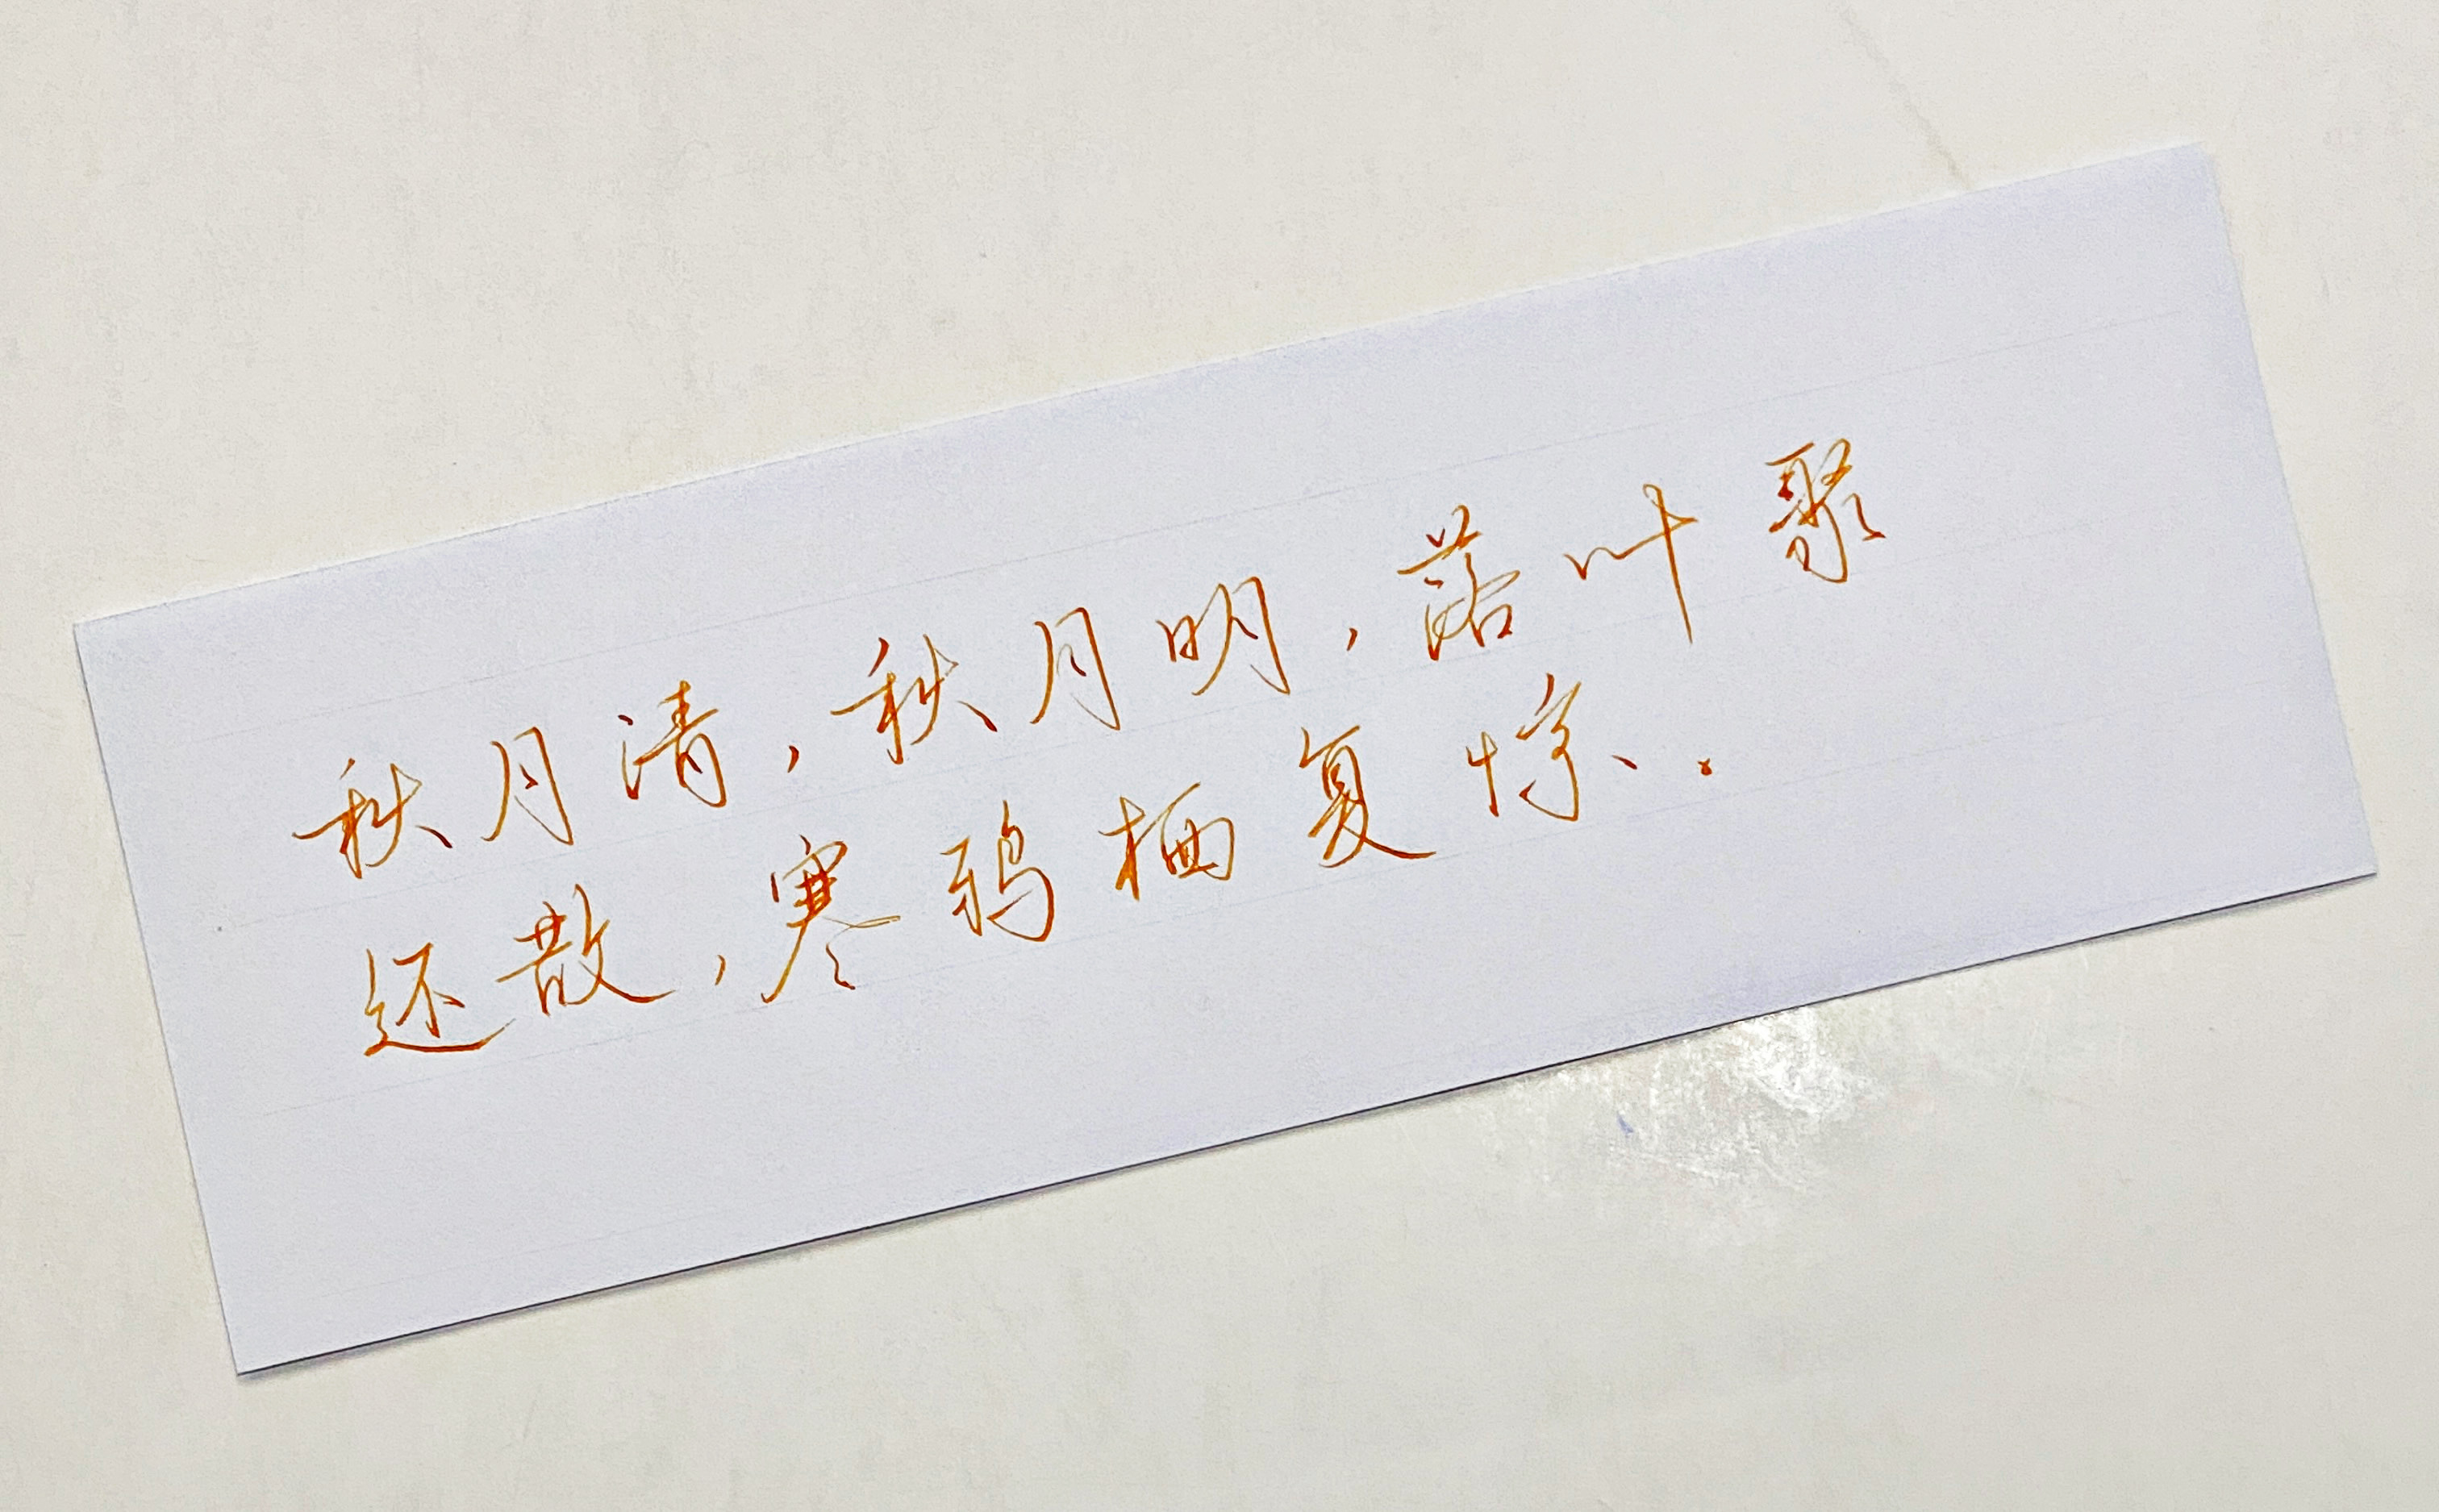 秋月清,秋月明,落叶聚
还散,寒鸦栖复惊.